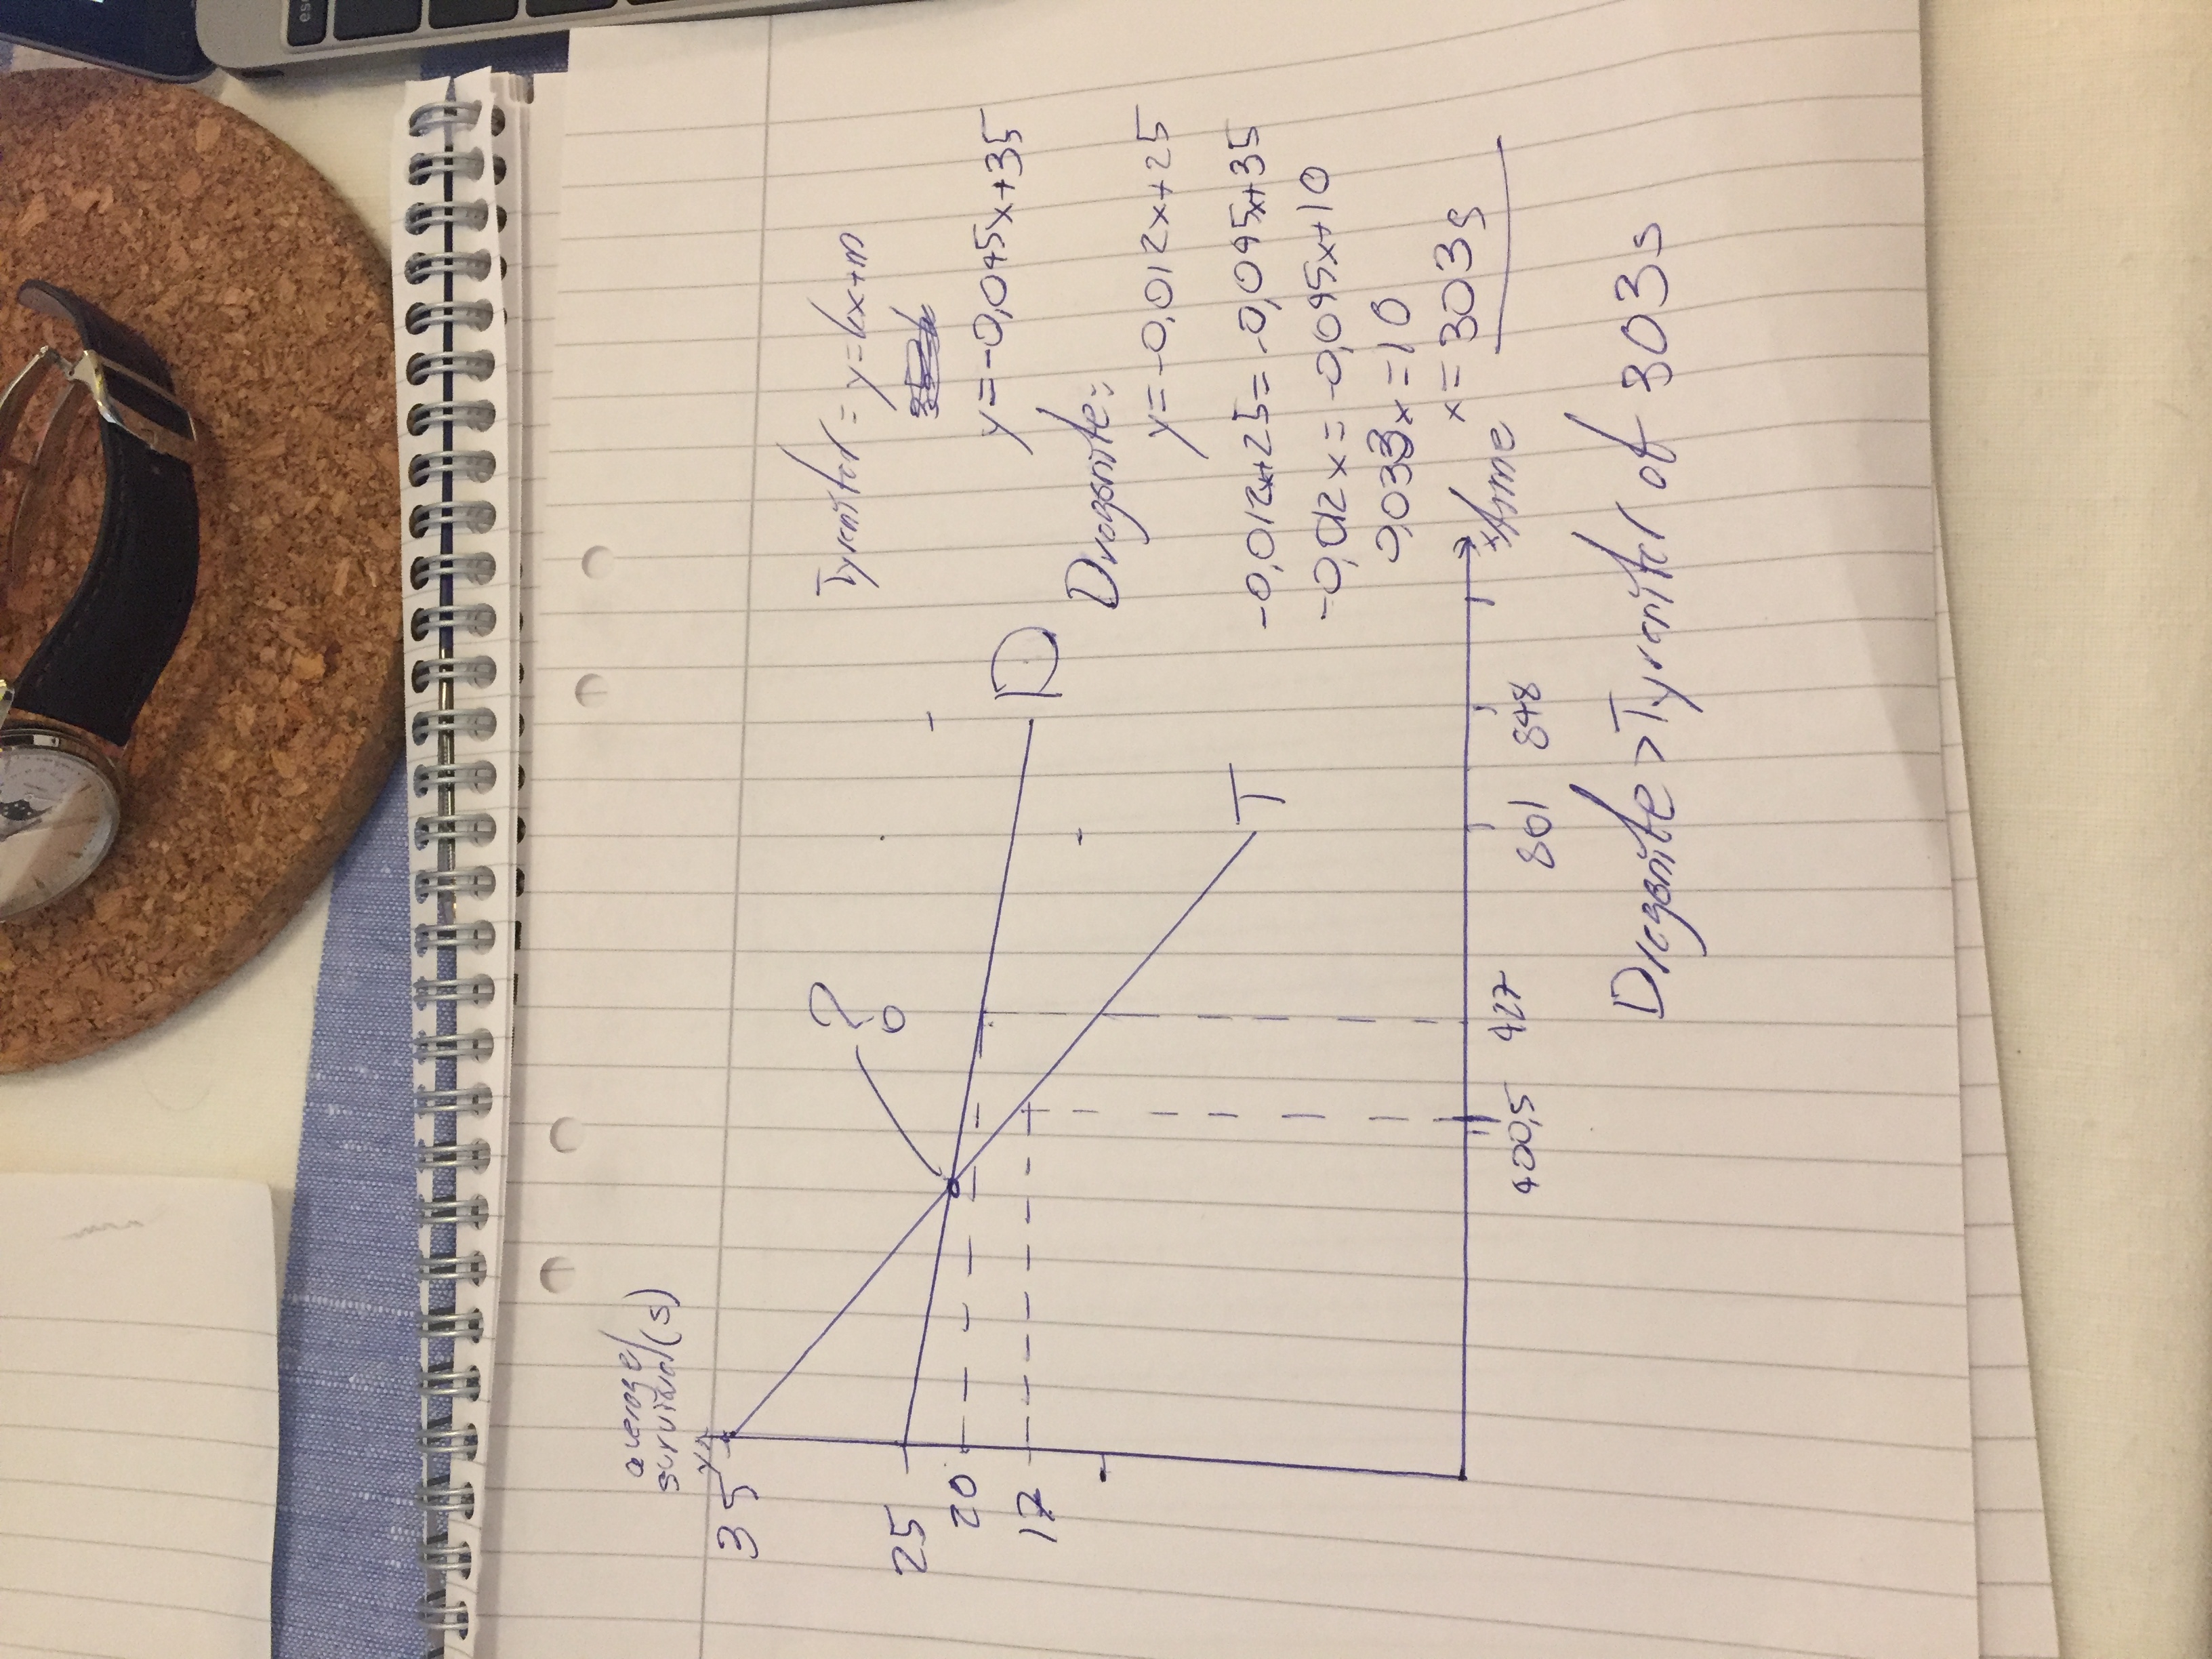 average
survival (s)
y
35
25
20
17
?
D
T
400,5
427
801
848
x time
Tyranitar = y=kx+m
y=-0,045x+35
Dragonite:
y=-0,012x+25
-0,012x+25=-0,045x+35
-0,012x=-0,045x+10
0,033x=10
x=303s
Dragonite>Tyranitar of 303s